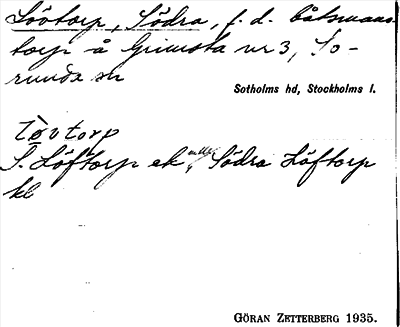 Lövtorp, Södra, f. d. båtsmans-
torp å Grimsta nr 3, So-
runda sn
Sotholms hd, Stockholms l.
Lövtorp
S. Löftorp ek Södra Löftorp
kb
GÖRAN ZETTERBERG 1935.